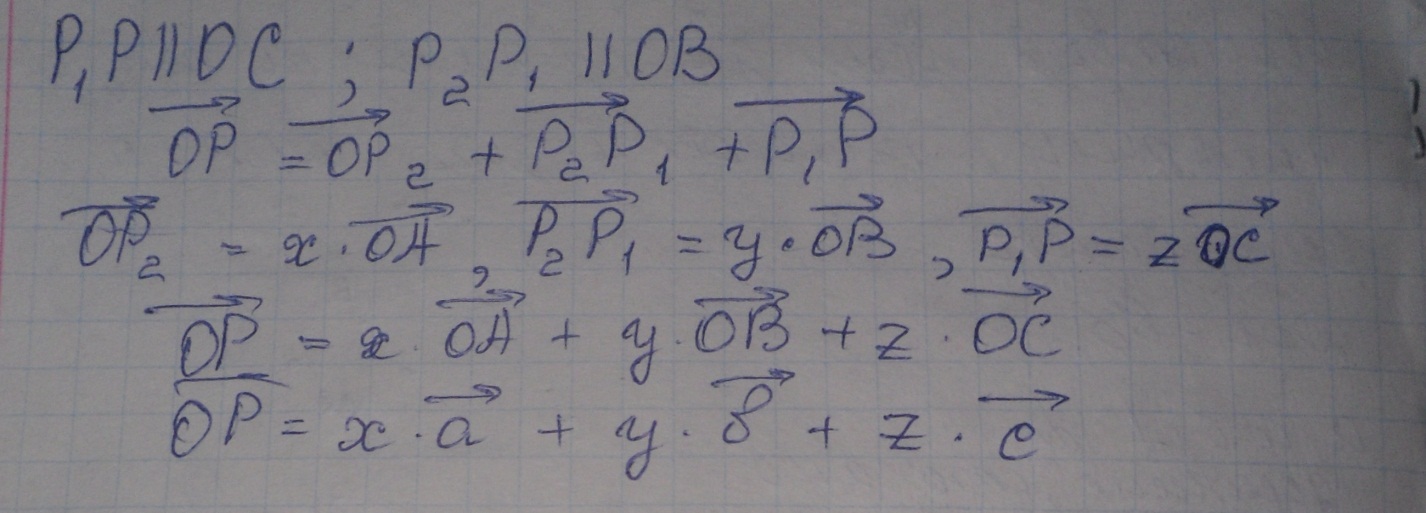 P₁P || OC ; P₂P₁ || OB
→OP = →OP₂ + →P₂P₁ + →P₁P
→OP₂ = x · →OA , →P₂P₁ = y · →OB , →P₁P = z →OC
→OP = x · →OA + y · →OB + z · →OC
→OP = x · →a + y · →в + z · →c